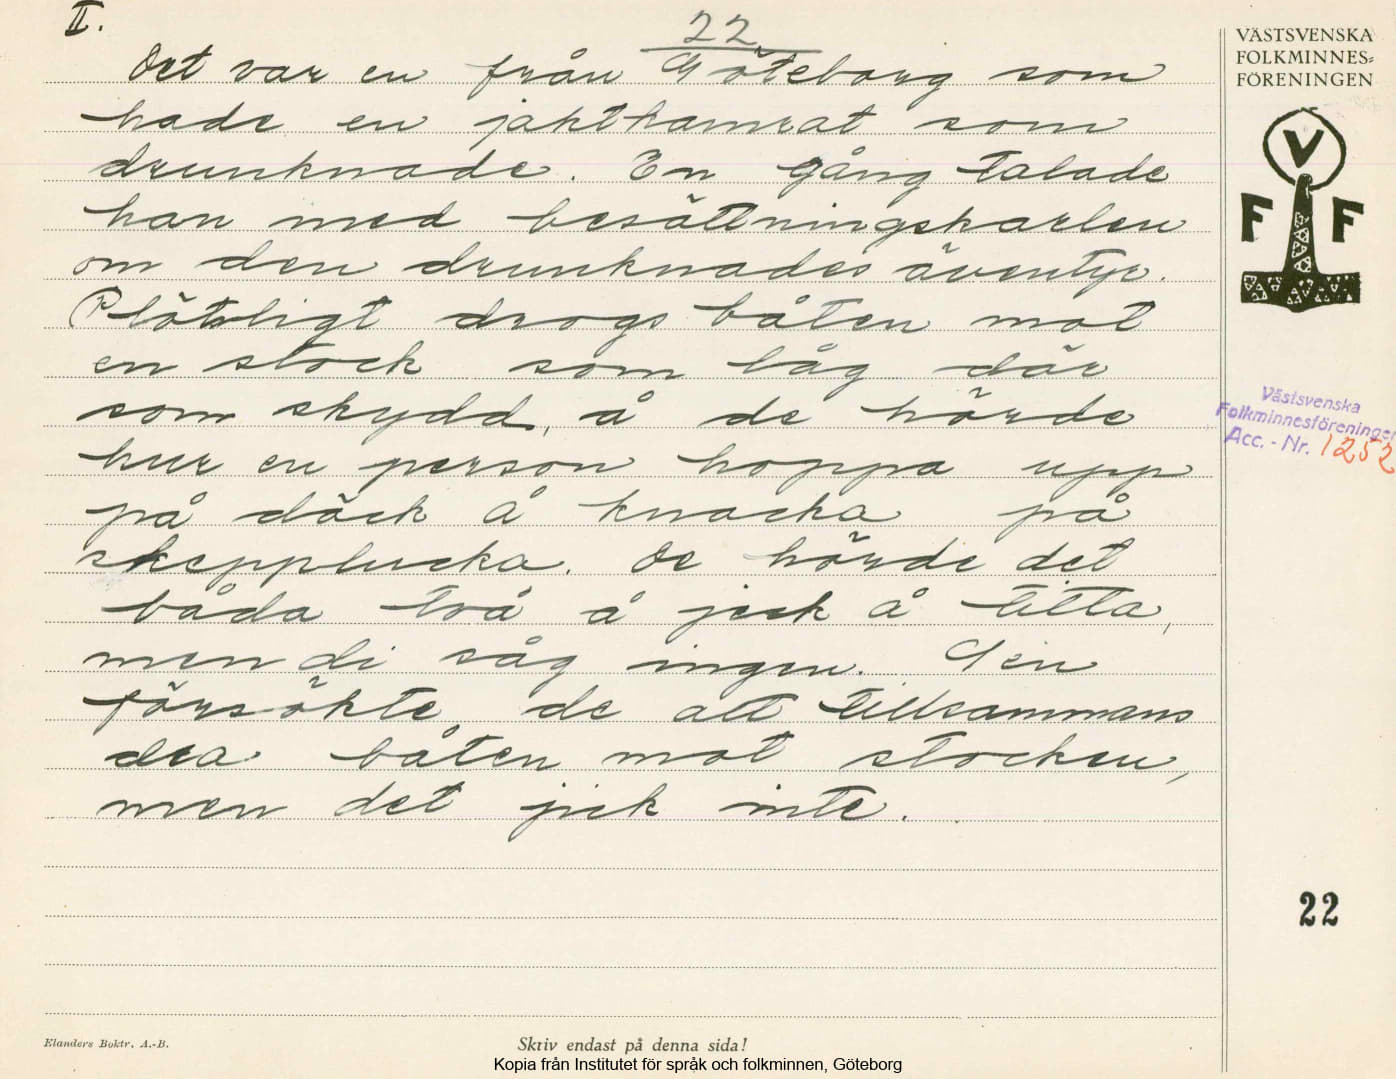 II.
22
Det var en från Göteborg som
hade en jaktkamrat som
drunknade. En gång talade
han med besättningskarlen
om den drunknades äventyr.
Plötsligt drogs båten mot
en stock som låg där
som skydd, å de hörde
hur en person hoppa upp
på däck å knacka på
skepplucka. De hörde det
båda två å jeck å titta,
men di såg ingen. Sen
försökte de att tillsammans
dra båten mot stocken,
men det jick inte.
VÄSTSVENSKA
FOLKMINNES=
FÖRENINGEN
V
F F
Västsvenska
Folkminnesföreningen
Acc. - Nr. 1252
22
Elanders Boktr. A.-B.
Skriv endast på denna sida!
Kopia från Institutet för språk och folkminnen, Göteborg